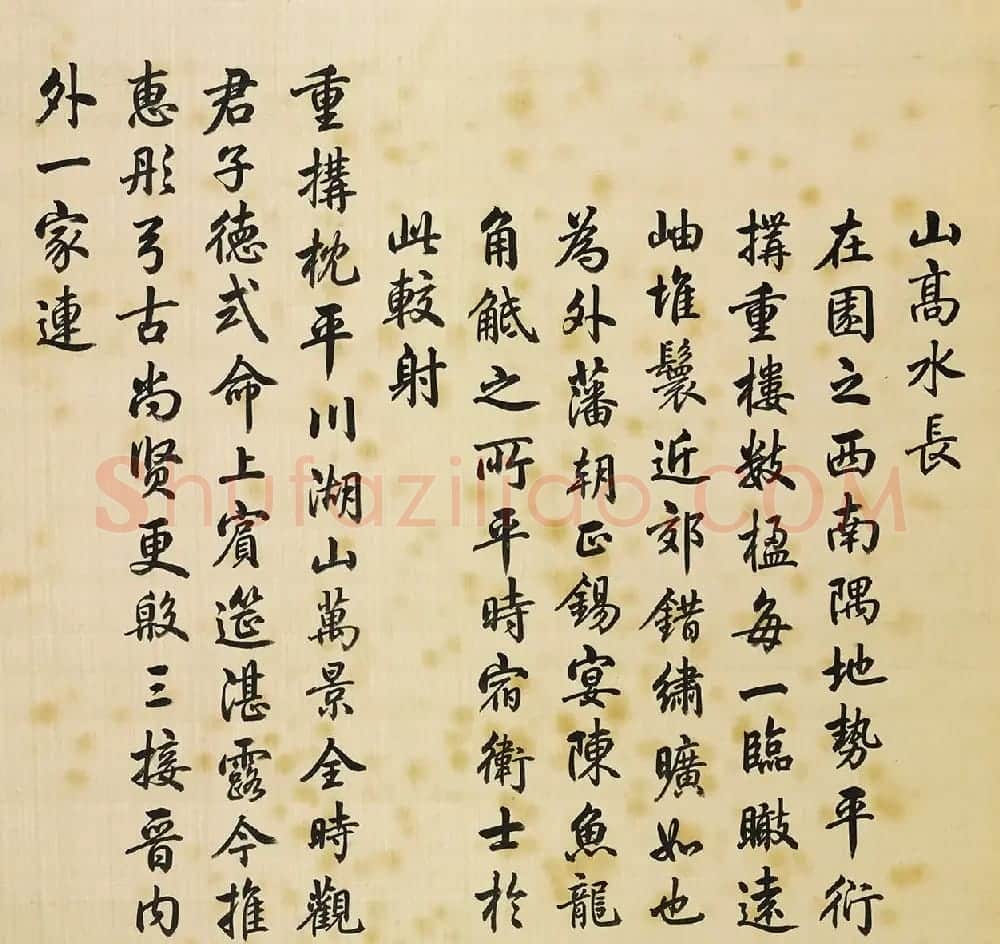 山髙水長
在園之西南隅地勢平衍
搆重樓數楹每一臨瞰遠
岫堆鬟近郊錯繡曠如也
為外藩朝正錫宴陳魚龍
角觝之所平時宿衛士於
此較射
重搆枕平川湖山萬景全時觀
君子德式命上賓筵湛露今推
惠彤弓古尚賢更殷三接晉内
外一家連
Shufazidao.COM